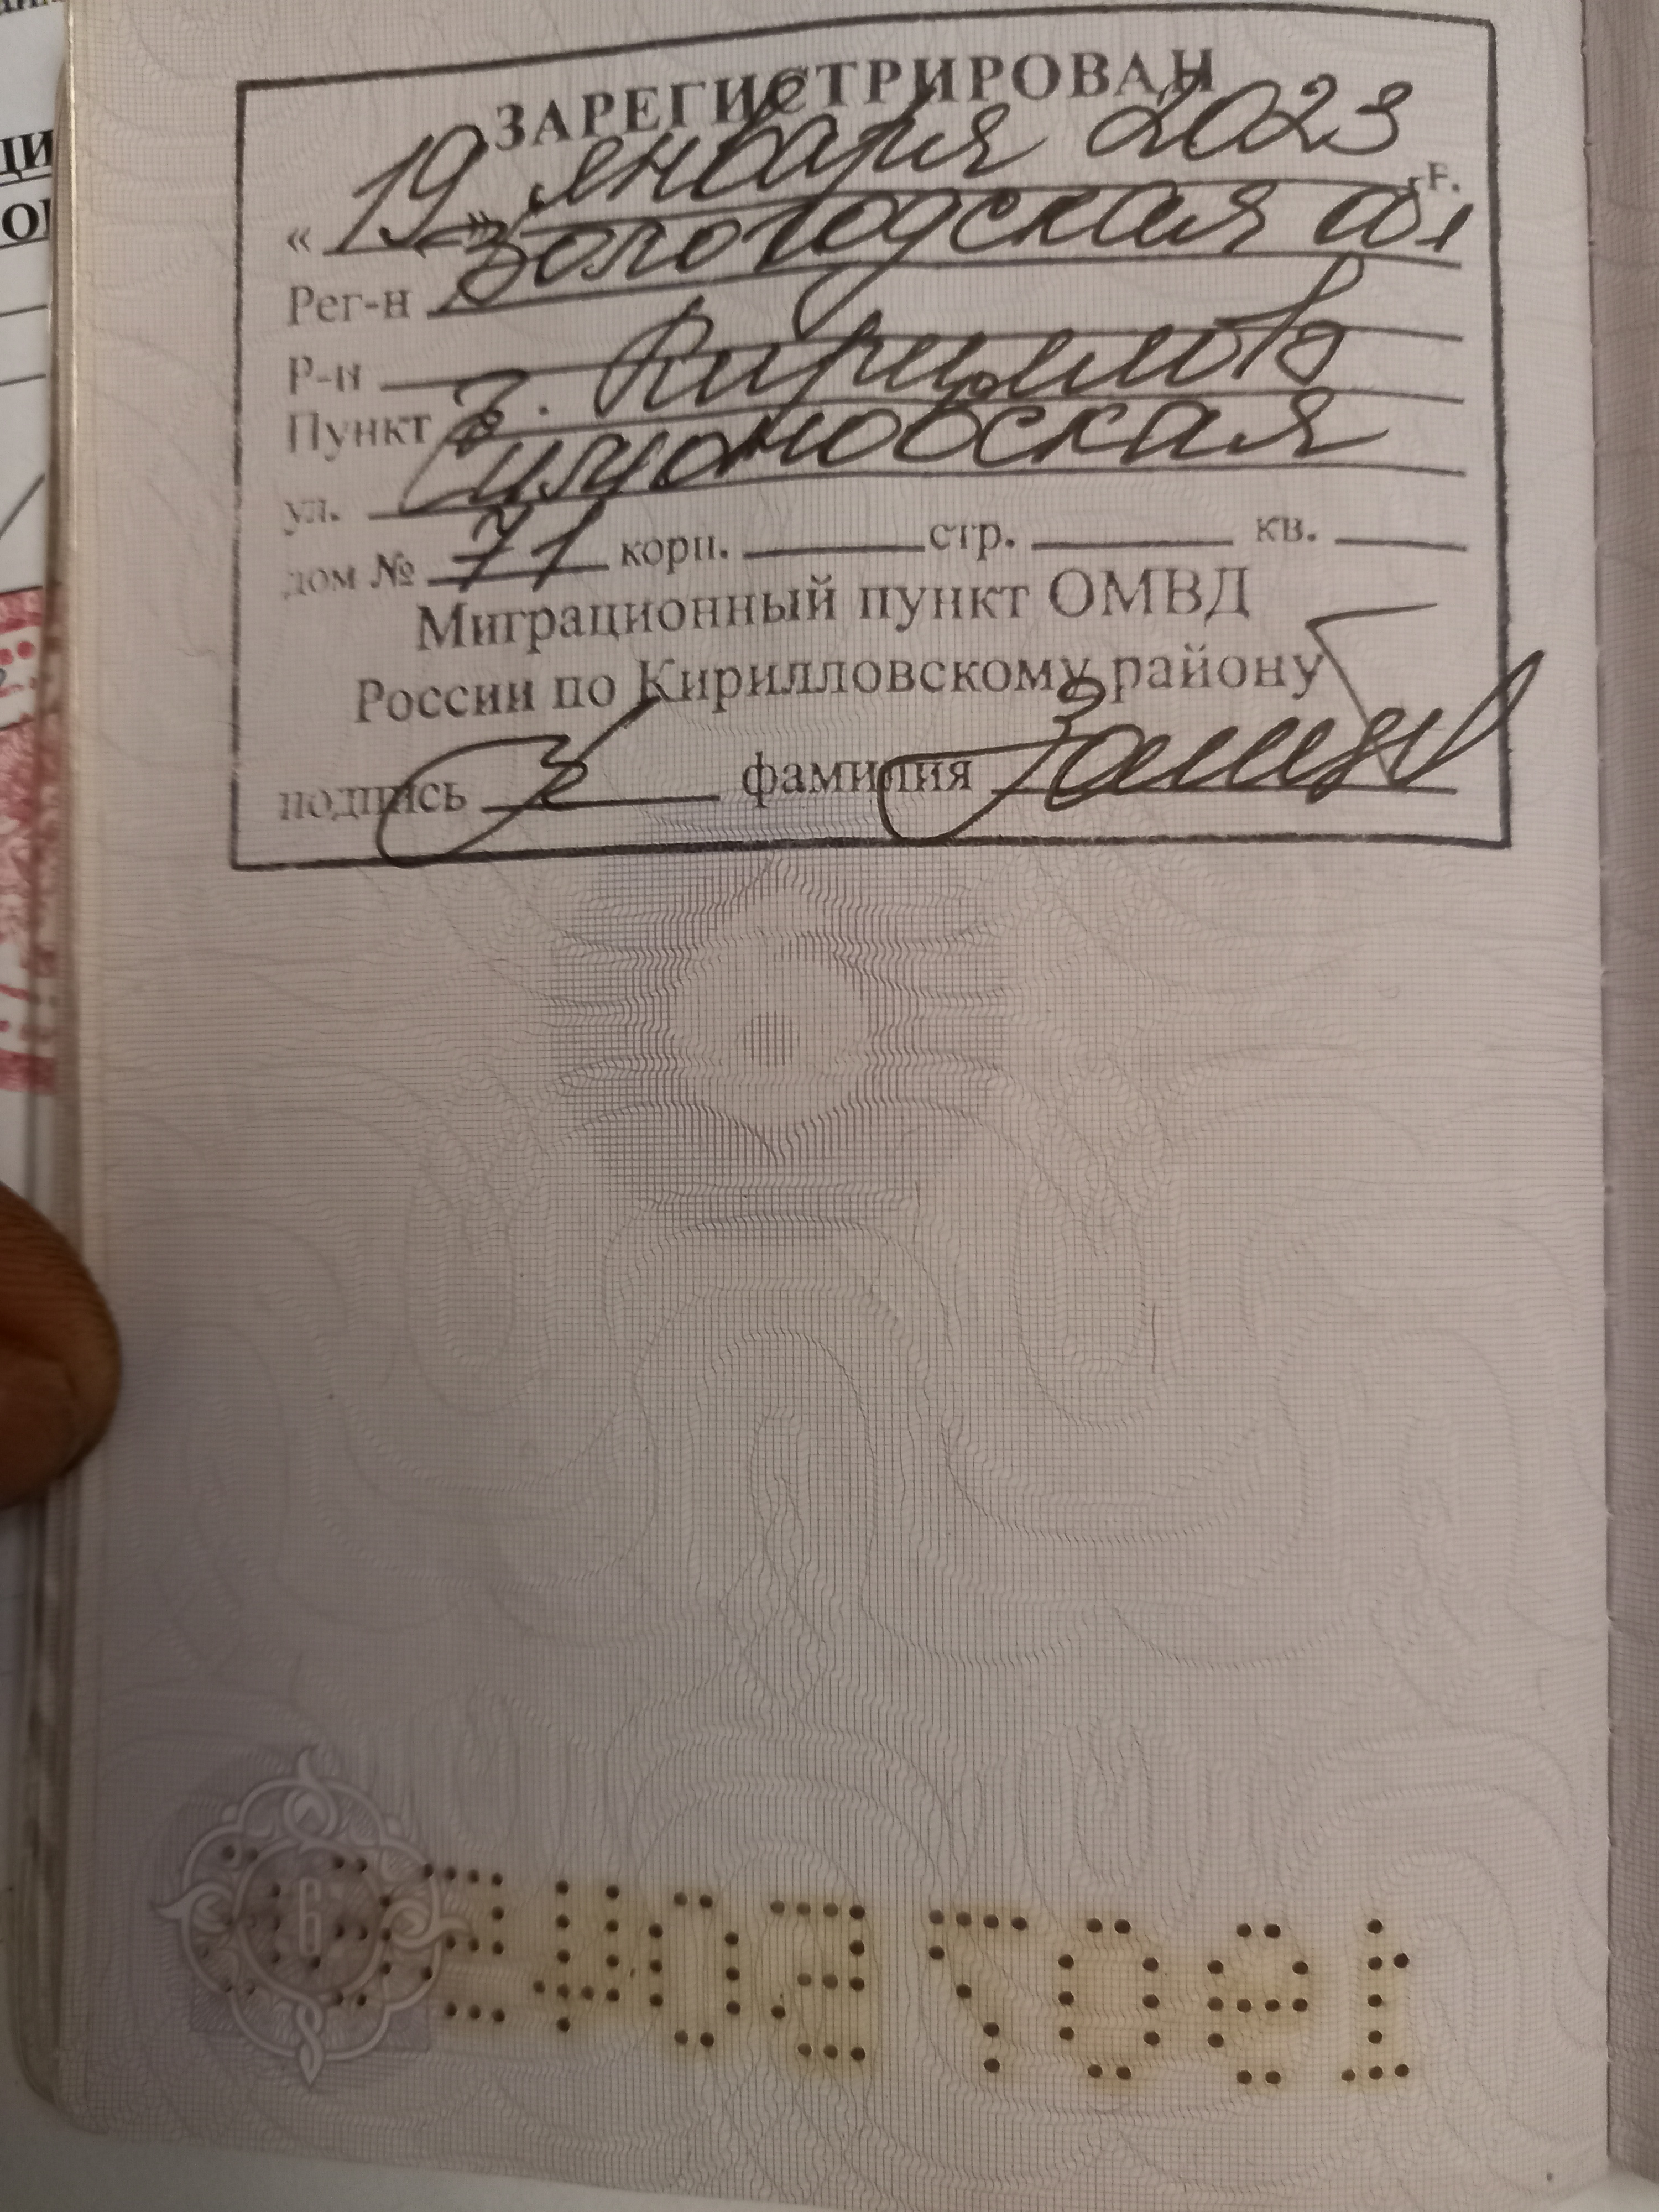 ЗАРЕГИСТРИРОВАН
« 19 » января 2023 г.
Рег-н Вологодская обл
Р-н
Пункт г. Кириллов
ул. Симоновская
дом № 71 корп. стр. кв.
Миграционный пункт ОМВД
России по Кирилловскому району
подпись фамилия
6